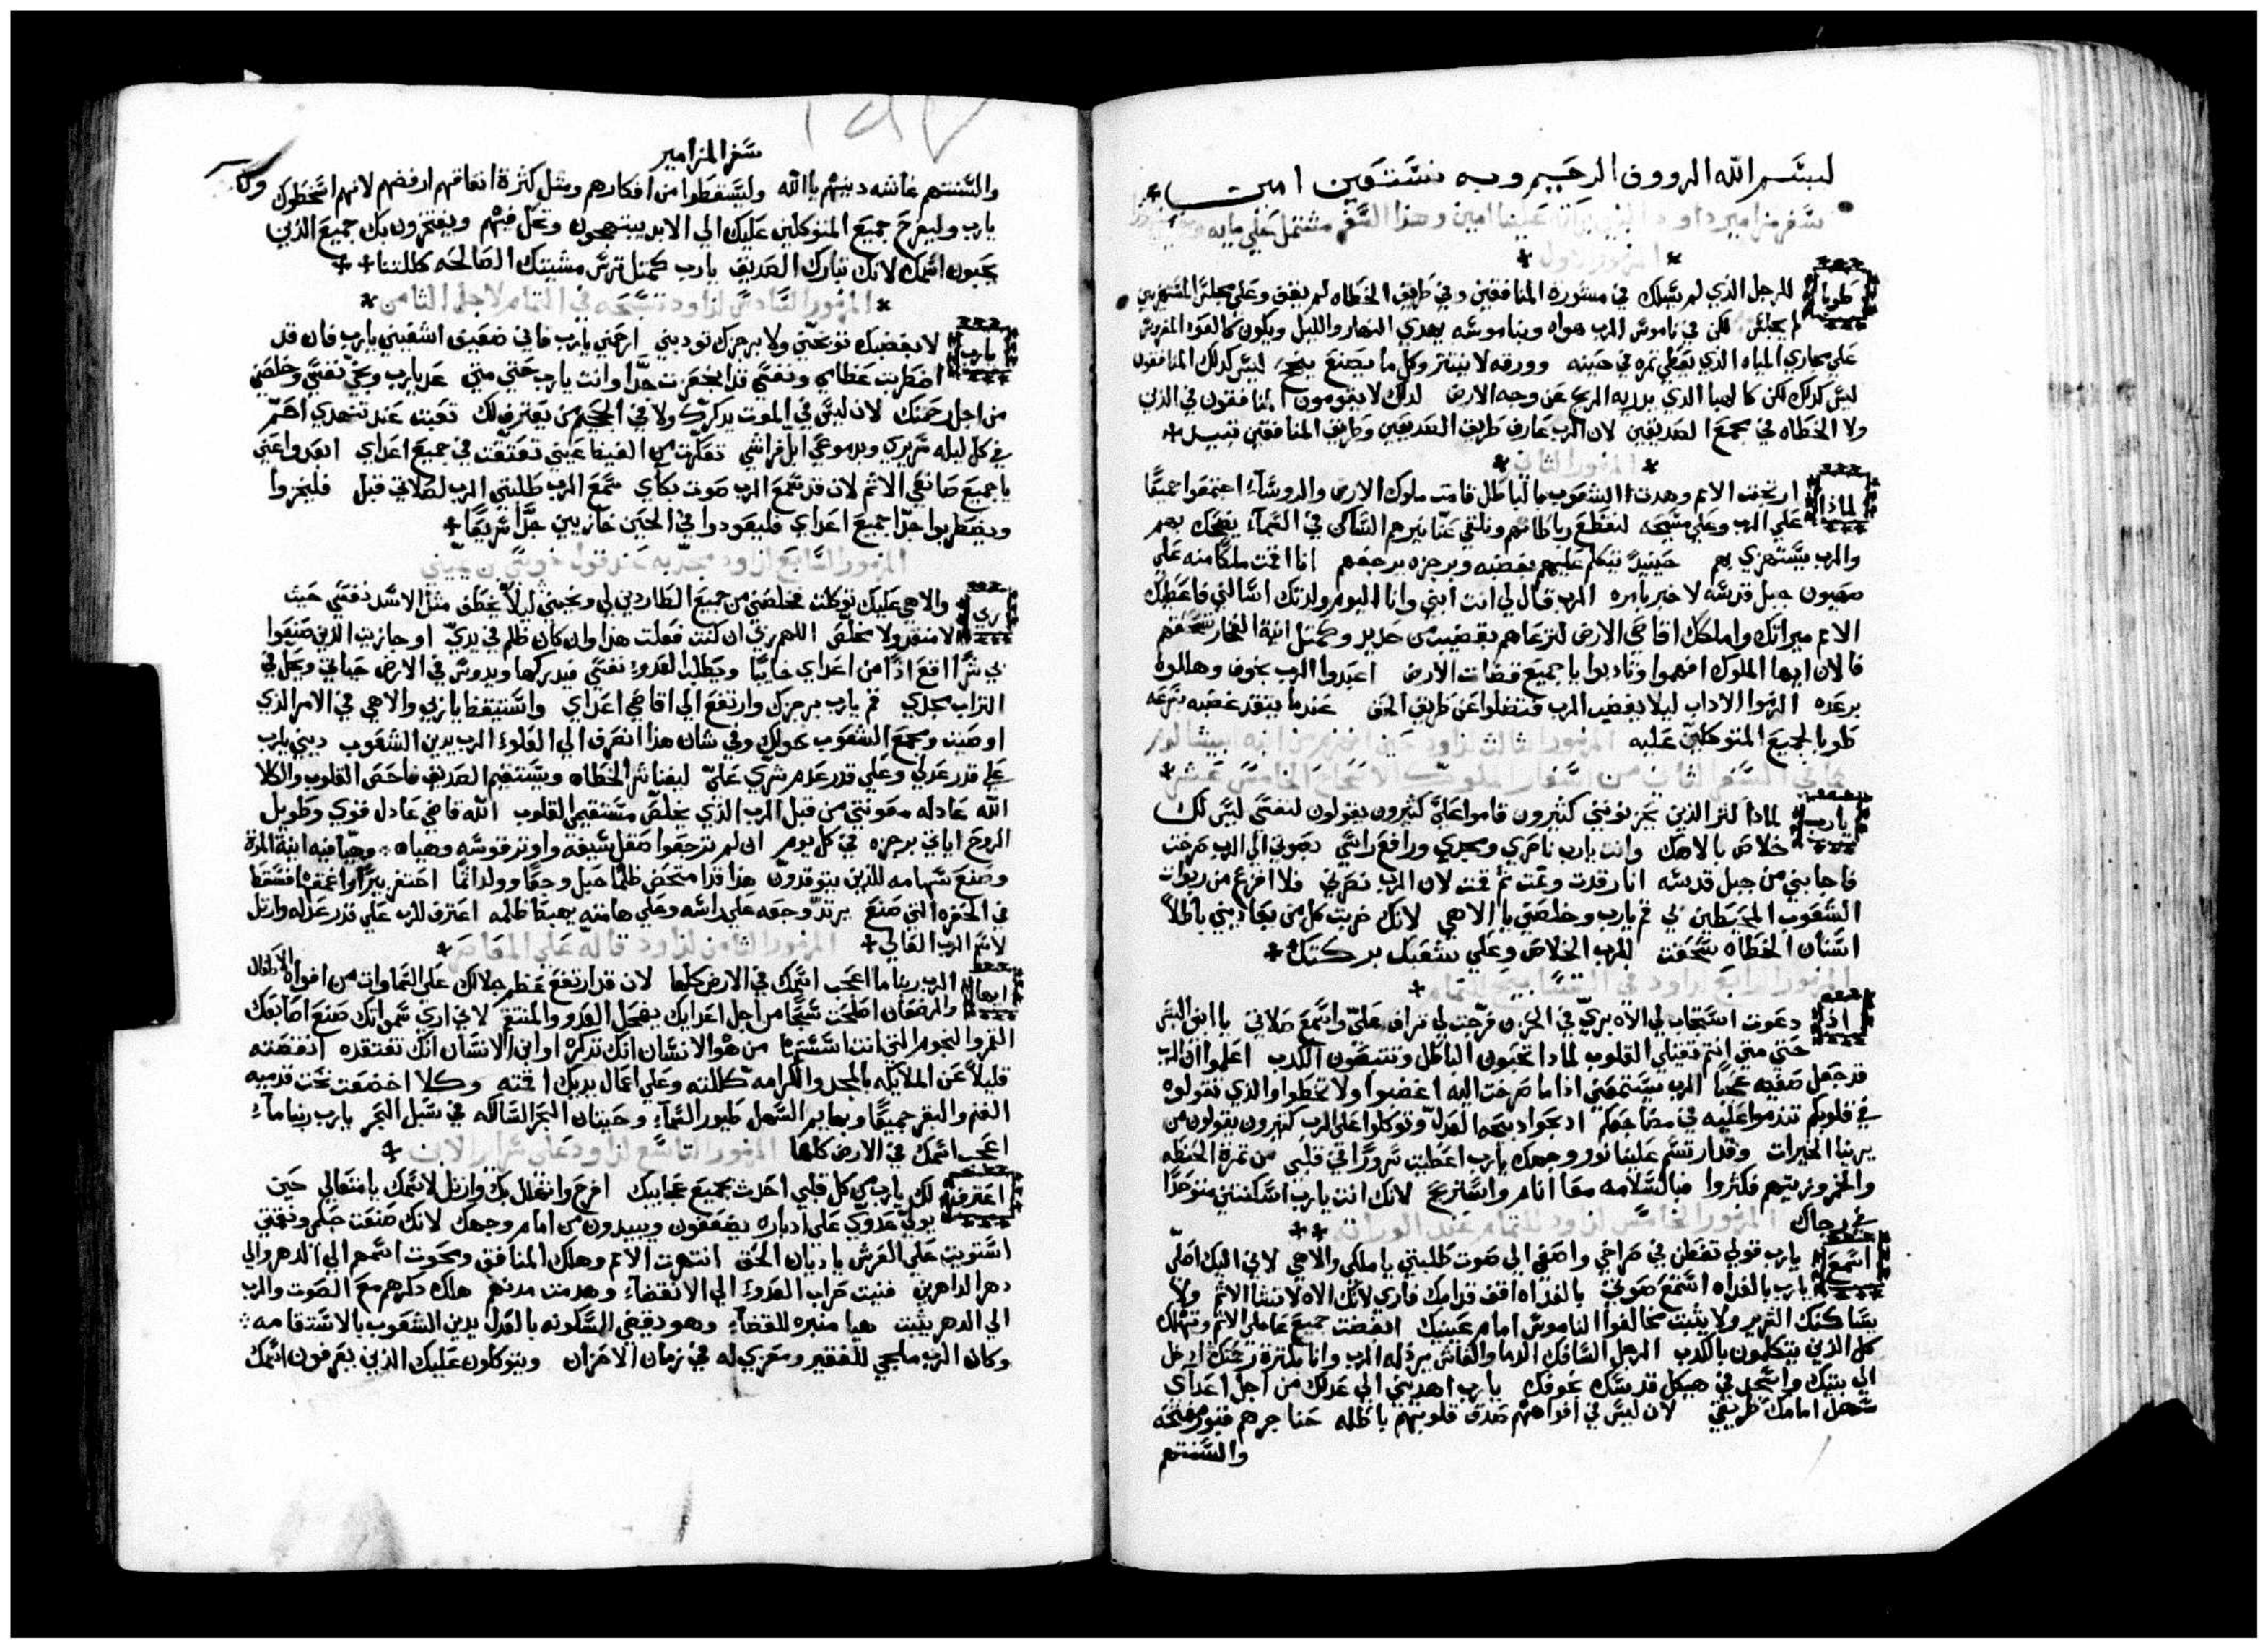 بسم الله الرووف الرحيم وبه نستعين امين
سفر مزامير داود النبي بركاته علينا امين وهذا السفر مشتمل علي مايه
المزمور الاول
طوبا للرجل الذي لم يسلك في مشورة المنافقين وفي طريق الخطاه لم يقف وعلي مجلس المستهزيين
لم يجلس لكن في ناموس الرب هواه وبناموسه يهدي النهار والليل ويكون كالعود المغروس
علي مجاري المياه الذي يعطي ثمره في حينه وورقه لا ينتثر وكل ما يصنع ينجح ليس كذلك المنافقون
ليس كذلك لكن كالهبا الذي يذريه الريح عن وجه الارض لذلك لا يقومون المنافقون في الدين
ولا الخطاه في مجمع الصديقين لان الرب عارف طريق الصديقين وطريق المنافقين تبيد
المزمور الثاني
لماذا ارتجت الامم وهدت الشعوب بالباطل قامت ملوك الارض والروسآء اجتمعوا جميعًا
علي الرب وعلي مسيحه لنقطع رباطاتهم ونلقي عنا نيرهم الساكن في السمآء يضحك بهم
والرب يستهزي بهم حينيذ يتكلم عليهم بغضبه وبرجزه يرجفهم انا اقمت ملكًا منه علي
صهيون جبل قدسه لاخبر بامره الرب قال لي انت ابني وانا اليوم ولدتك اسالني فاعطيك
الامم ميراثك واملكك اقاصي الارض لترعاهم بقضيب من حديد وكمثل انية الفخار تسحقهم
فالان ايها الملوك افهموا وتادبوا يا جميع قضات الارض اعبدوا الرب بخوف وهللوا
برعده الزموا الاداب ليلا يغضب الرب فتضلوا عن طريق الحق عندما يتقد غضبه بسرعه
طوبا لجميع المتوكلين عليه المزمور الثالث لداود حين انهزم من ابنه ابيشالوم
كما في السفر الثاني من اسفار الملوك الاصحاح الخامس عشر
يارب لماذا كثر الذين يحزنونني كثيرون قاموا علي كثيرون يقولون لنفسي ليس لك
خلاص بالاهك وانت يارب ناصري ومجدي ورافع راسي بصوتي الي الرب صرخت
فاجابني من جبل قدسه انا رقدت ونمت ثم قمت لان الرب نصرني فلا افزع من ربوات
الشعوب المحيطين بي قم يارب وخلصني يا الاهي لانك ضربت كل من يعاديني باطلاً
اسنان الخطاه سحقت للرب الخلاص وعلي شعبك بركتك
المزمور الرابع لداود في التمام
اذ دعوت استجاب لي الاه بري في الحزن فرجت لي تراف علي واسمع صلاتي يا ابنو البشر
حتي متي انتم ثقيلي القلوب لماذا تحبون الباطل وتتبعون الكذب اعلموا ان الرب
قد جعل صفيه عجبًا الرب يستمعني اذا ما صرخت اليه اغضبوا ولا تخطوا والذي تقولوه
في قلوبكم تندموا عليه في مضاجعكم اذبحوا ذبيحة العدل وتوكلوا علي الرب كثيرون يقولون من
يرينا الخيرات وقد ارتسم علينا نور وجهك يارب اعطيت سرورًا في قلبي من ثمرة الحنطه
والخمر وزيتهم فكثروا فبالسلامه معًا انام واستريح لانك انت يارب اسكنتني متوحدًا
في رجاك المزمور الخامس لداود للتمام عند الوراثه
استمع يارب قولي تفطن في صراخي واصغي الي صوت طلبتي يا ملكي والاهي لاني اليك اصلي
يارب بالغداه استمع صوتي بالغداه اقف قدامك فتراني لانك الاه لا تشا الاثم ولا
يساكنك الشرير ولا يثبت مخالفوا الناموس امام عينيك ابغضت جميع عاملي الاثم وتهلك
كل الذين يتكلمون بالكذب الرجل السافك الدما والغاش يرذله الرب وانا بكثرة رحمتك ادخل
الي بيتك واسجد في هيكل قدسك بخوفك يارب اهديني الي عدلك من اجل اعداي
سهل امامك طريقي لان ليس في افواههم صدق قلوبهم باطله حناجرهم قبور مفتحه
والسنتهم
سفر المزامير
والسنتهم غاشه دينهم يا الله وليسقطوا من افكارهم ومثل كثرة نفاقهم ارفضهم لانهم اسخطوك
يارب وليفرح جميع المتوكلين عليك الي الابد يبتهجون وتحل فيهم ويفتخرون بك جميع الذين
يحبون اسمك لانك تبارك الصديق يارب كمثل ترس مشيتك الصالحه كللتنا
المزمور السادس لداود تسبحه في التمام لاجل الثامن
يارب لا بغضبك توبخني ولا برجزك تودبني ارحمني يارب فاني ضعيف اشفيني يارب فان قد
اضطربت عظامي ونفسي قد انجزعت جدًا وانت يارب حتي متي عد يارب ونج نفسي وخلصني
من اجل رحمتك لان ليس في الموت يذكرك ولا في الجحيم من يعترف لك تعبت عند تنهدي احمم
في كل ليله سريري وبدموعي ابل فراشي تعكرت من الغيض عيني تعتقت في جميع اعداي ابعدوا عني
يا جميع صانعي الاثم لان قد سمع الرب صوت بكاي سمع الرب طلبتي الرب لصلاتي قبل فليخزوا
ويضطربوا جدًا جميع اعداي فليعودوا الي الحين خازيين جدًا سريعًا
المزمور السابع لداود
ربي والاهي عليك توكلت فخلصني من جميع الطاردين لي ونجيني ليلاً يخطف مثل الاسد نفسي حيث
لا منقذ ولا مخلص اللهم ربي ان كنت فعلت هذا وان كان ظلم في يدي او جازيت الذين صنعوا
بي شرًا اقع اذًا من اعداي خايبًا ويطلب العدو نفسي فيدركها ويدوس في الارض حياتي ويجعل في
التراب مجدي قم يارب برجزك وارتفع الي اقاصي اعداي واستيقظ يا ربي والاهي في الامر الذي
اوصيت ومجمع الشعوب حولك وفي شان هذا انصرف الي العلو الرب يدين الشعوب دينني يارب
علي قدر عدلي وعلي قدر عدم شري علي ليفنا شر الخطاه ويستقيم الصديق فاحص القلوب والكلا
الله عادله معونتي من قبل الرب الذي يخلص مستقيمي القلوب الله قاضي عادل قوي وطويل
الروح اياتي برجزه في كل يوم ان لم ترجعوا صقل سيفه واوتر قوسه وهياه وهيا فيه انية الموت
وصنع سهامه للذين يتوقدون هذا قد امتخض ظلمًا حبل وجعًا وولد اثمًا احتفر بيرًا واعمقه فسقط
في الحفره التي صنع يرتد وجعه علي راسه وعلي هامته يهبط ظلمه اعترف للرب علي قدر عدله وارتل
لاسم الرب العالي المزمور الثامن لداود قاله علي المعاصر
ايها الرب ربنا ما اعجب اسمك في الارض كلها لان قد ارتفع عظم جلالك علي السماوات من افواه الاطفال
والرضعان اصلحت سبحًا من اجل اعدايك يضحل العدو والمنتقم لاني اري سمواتك صنع اصابعك
القمر والنجوم التي انت اسستها من هو الانسان انك تذكره او ابن الانسان انك تفتقده انقصته
قليلاً عن الملايكه بالمجد والكرامه كللته وعلي اعمال يديك اقمته وكلا اخضعت تحت قدميه
الغنم والبقر جميعًا وبهايم السهل طيور السمآء وحيتان البحر السالكه في سبل البحر يارب ربنا ما
اعجب اسمك في الارض كلها المزمور التاسع لداود علي سراير الابن
اعترف لك يارب من كل قلبي احدث بجميع عجايبك افرح واتهلل بك وارتل لاسمك يا متعالي حين
يولي عدوي علي ادباره يضعفون ويبيدون من امام وجهك لانك صنعت حكمي ونقمتي
استويت علي العرش يا ديان الحق انتهرت الامم وهلك المنافق ومحوت اسمهم الي الدهر والي
دهر الداهرين فنيت حراب العدو الي الانقضآء وهدمت مدنهم هلك ذكرهم مع الصوت والرب
الي الدهر يثبت هيا منبره للقضآء وهو يقضي المسكونه بالعدل يدين الشعوب بالاستقامه
وكان الرب ملجي للفقير ومعزي له في زمان الاحزان ويتوكلون عليك الذين يعرفون اسمك